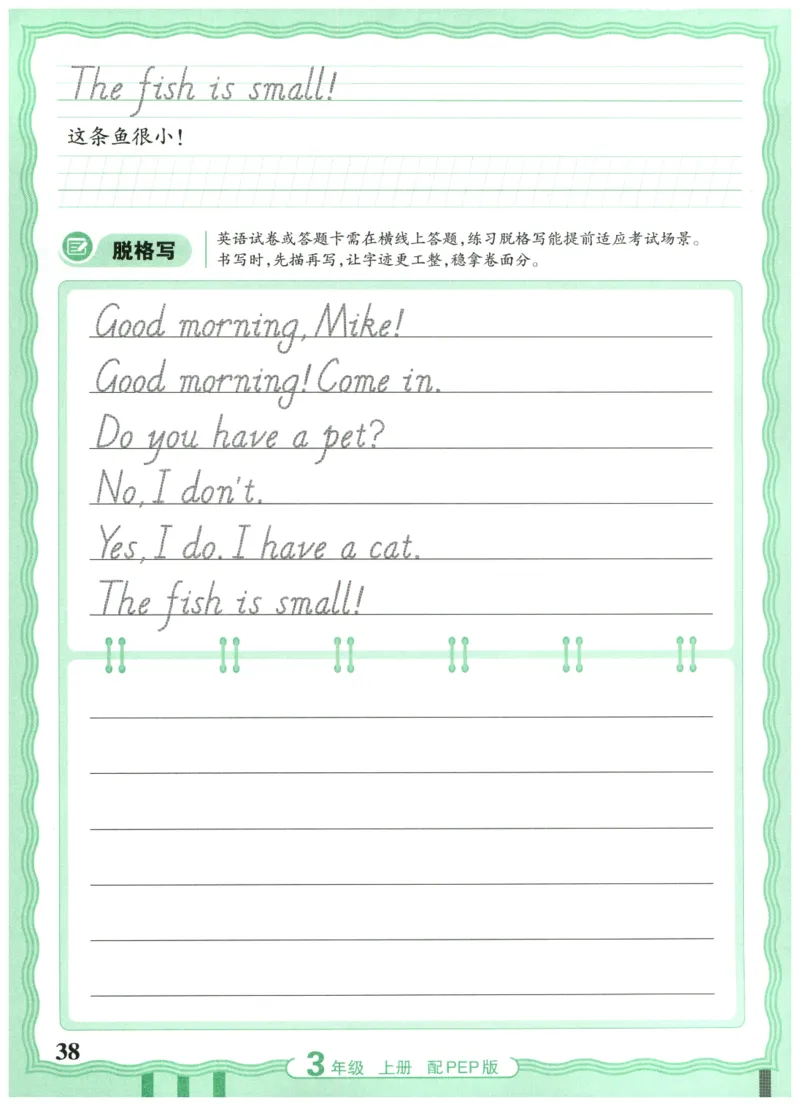 The fish is small!
这条鱼很小!
脱格写
英语试卷或答题卡需在横线上答题,练习脱格写能提前适应考试场景。
书写时,先描再写,让字迹更工整,稳拿卷面分。
Good morning, Mike!
Good morning! Come in.
Do you have a pet?
No, I don't.
Yes, I do. I have a cat.
The fish is small!
38
3年级 上册 配PEP版